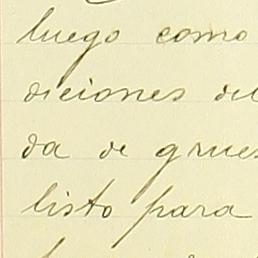 luego como
diciones del
da de grues
listo para